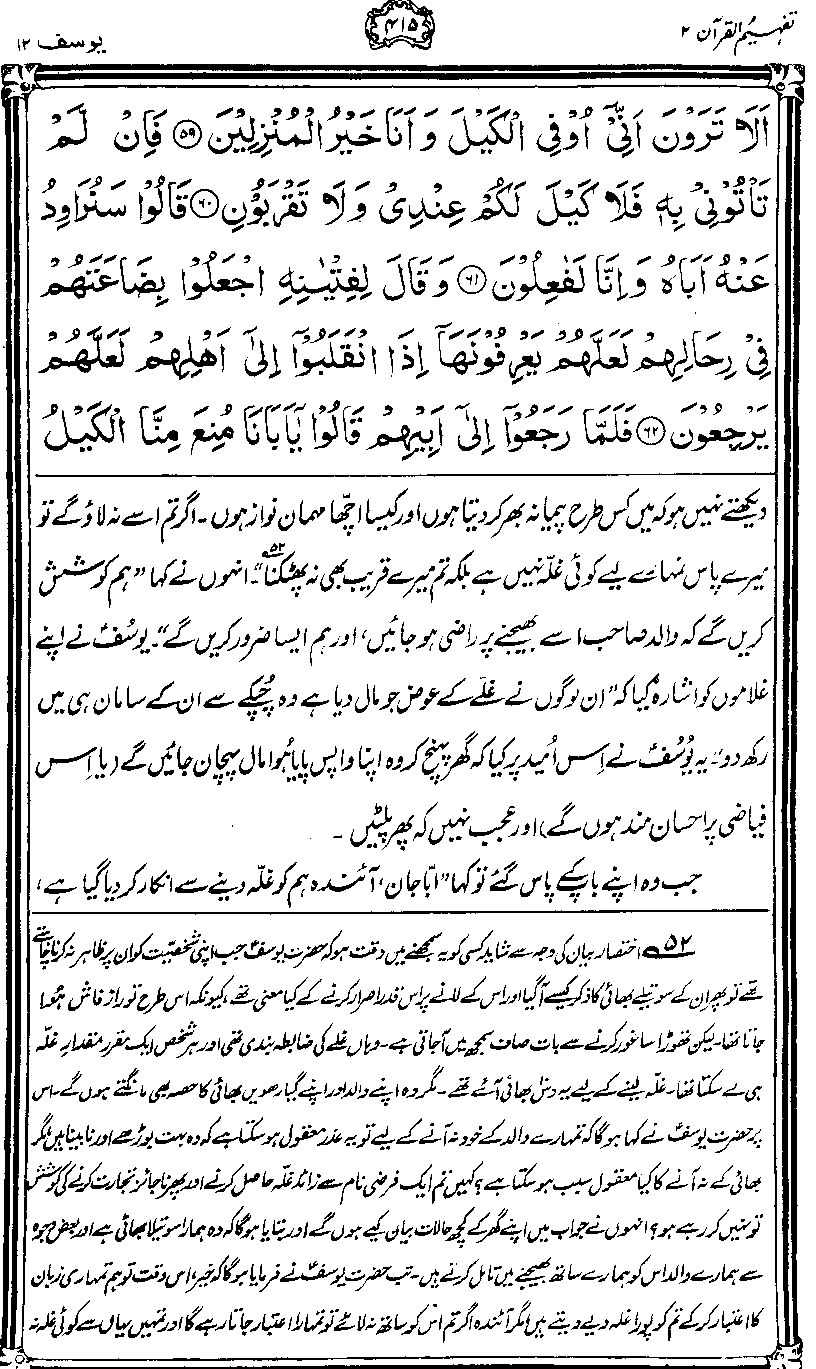 تفہیم القرآن ۲
۴۱۵
یوسف ۱۲
اَلَا تَرَوْنَ اَنِّیْٓ اُوْفِی الْكَیْلَ وَ اَنَا خَیْرُ الْمُنْزِلِیْنَ ﴿۵۹﴾ فَاِنْ لَّمْ
تَاْتُوْنِیْ بِهٖ فَلَا كَیْلَ لَكُمْ عِنْدِیْ وَ لَا تَقْرَبُوْنِ ﴿۶۰﴾ قَالُوْا سَنُرَاوِدُ
عَنْهُ اَبَاهُ وَ اِنَّا لَفٰعِلُوْنَ ﴿۶۱﴾ وَ قَالَ لِفِتْیٰنِهِ اجْعَلُوْا بِضَاعَتَهُمْ
فِیْ رِحَالِهِمْ لَعَلَّهُمْ یَعْرِفُوْنَهَاۤ اِذَا انْقَلَبُوْۤا اِلٰۤی اَهْلِهِمْ لَعَلَّهُمْ
یَرْجِعُوْنَ ﴿۶۲﴾ فَلَمَّا رَجَعُوْۤا اِلٰۤی اَبِیْهِمْ قَالُوْا یٰۤاَبَانَا مُنِعَ مِنَّا الْكَیْلُ
دیکھتے نہیں ہو کہ میں کس طرح پیمانہ بھر کر دیتا ہوں اور کیسا اچھا مہمان نواز ہوں۔ اگر تم اسے نہ لاؤ گے تو
میرے پاس تمہارے لیے کوئی غلّہ نہیں ہے بلکہ تم میرے قریب بھی نہ پھٹکنا“۵۲۔ انہوں نے کہا ”ہم کوشش
کریں گے کہ والد صاحب اسے بھیجنے پر راضی ہو جائیں، اور ہم ایسا ضرور کریں گے“۔ یوسفؑ نے اپنے
غلاموں کو اشارہ کیا کہ ”ان لوگوں نے غلّے کے عوض جو مال دیا ہے وہ چُپکے سے ان کے سامان ہی میں
رکھ دو“۔ یہ یوسفؑ نے اِس اُمید پر کیا کہ گھر پہنچ کر وہ اپنا واپس پایا ہُوا مال پہچان جائیں گے (یا اِس
فیاضی پر احسان مند ہوں گے) اور عجب نہیں کہ پھر پلٹیں۔
جب وہ اپنے باپ کے پاس گئے تو کہا ”ابّا جان، آئندہ ہم کو غلّہ دینے سے انکار کر دیا گیا ہے،
۵۲ اختصار بیان کی وجہ سے شاید کسی کو یہ سمجھنے میں دقت ہو کہ حضرت یوسفؑ جب اپنی شخصیت کو ان پر ظاہر نہ کرنا چاہتے
تھے تو پھر ان کے سوتیلے بھائی کا ذکر کیسے آگیا اور اس کے لانے پر اس قدر اصرار کرنے کے کیا معنی تھے، کیونکہ اس طرح تو راز فاش ہُوا
جاتا تھا۔ لیکن تھوڑا سا غور کرنے سے بات صاف سمجھ میں آجاتی ہے۔ وہاں غلے کی ضابطہ بندی تھی اور ہر شخص ایک مقرر مقدارِ غلہ
ہی لے سکتا تھا۔ غلہ لینے کے لیے یہ دس بھائی آئے تھے۔ مگر وہ اپنے والد اور اپنے گیارھویں بھائی کا حصہ بھی مانگتے ہوں گے۔ اس
پر حضرت یوسفؑ نے کہا ہوگا کہ تمہارے والد کے خود نہ آنے کے لیے تو یہ عذر معقول ہو سکتا ہے کہ وہ بہت بوڑھے اور نابینا ہیں، مگر
بھائی کے نہ آنے کا کیا معقول سبب ہو سکتا ہے؟ کہیں تم ایک فرضی نام سے زائد غلہ حاصل کرنے اور پھر ناجائز تجارت کرنے کی کوشش
تو نہیں کر رہے ہو؟ انہوں نے جواب میں اپنے گھر کے کچھ حالات بیان کیے ہوں گے اور بتایا ہوگا کہ وہ ہمارا سوتیلا بھائی ہے اور بعض وجوہ
سے ہمارے والد اس کو ہمارے ساتھ بھیجنے میں تامل کرتے ہیں۔ تب حضرت یوسفؑ نے فرمایا ہوگا کہ خیر، اس وقت تو ہم تمہاری زبان
کا اعتبار کر کے تم کو پورا غلہ دیے دیتے ہیں مگر آئندہ اگر تم اس کو ساتھ نہ لائے تو تمہارا اعتبار جاتا رہے گا اور تمہیں یہاں سے کوئی غلہ نہ